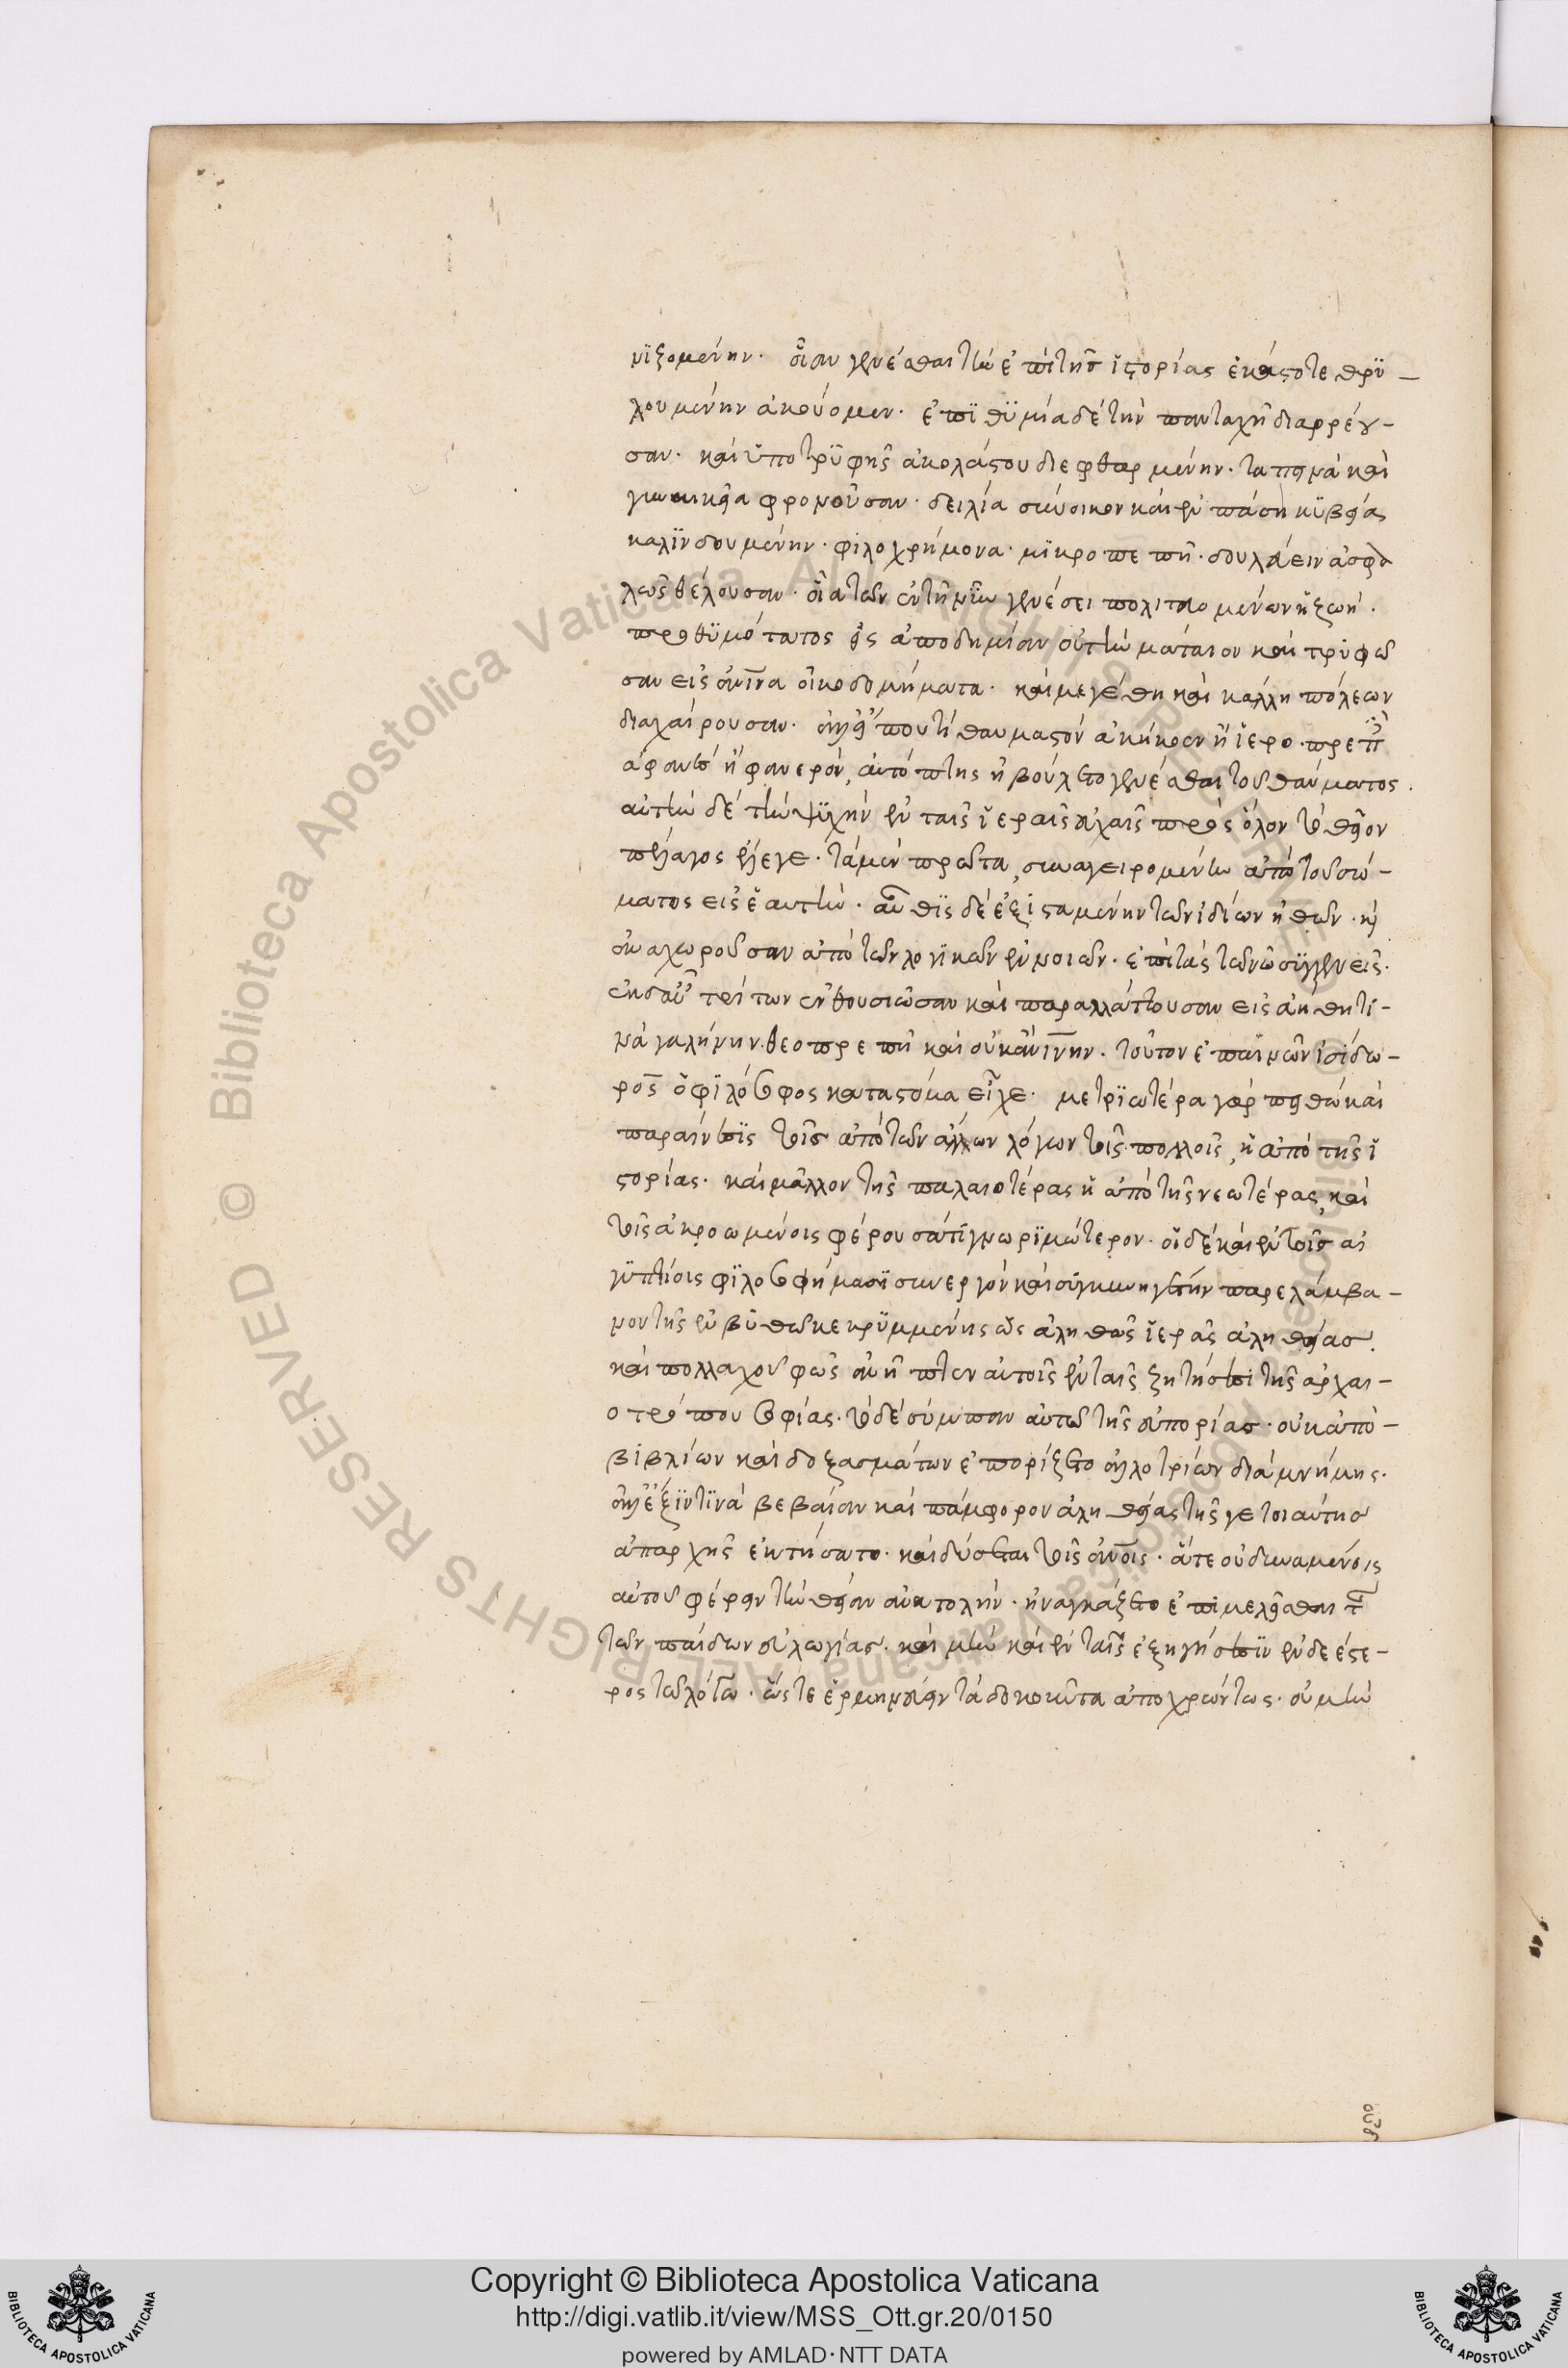 νϊζομένην. οἵαν γενέσθαι τὴν ἐπὶ τῆς ἱστορίας ἑκάστοτε θρϋ–
λουμένην ἀκούομεν. ἐπϊθϋμία δὲ τὴν πανταχῆ διαρρέου–
σαν. καὶ ὑπο τρϋφῆς ἀκολάστου διεφθαρμένην. ταπεινὰ καὶ
γυναικεῖα φρονοῦσαν. δειλία σύνοικον καὶ ἐν πάση κϋβείας
καλϊνδουμένην. φιλοχρήμονα. μϊκροπεπῆ. δουλεύειν ἀσφα
λῶς θέλουσαν. οἵα τῶν ἐν τῆ νῦν γενέσει πολιτευομένων ἡ ζωή.
προθϋμότατος εἰς ἀποδημίαν οὐ τὴν μάταιον καὶ τρυφῶ
σαν εἰς ἀνινα οἰκοδομήματα. καὶ μεγέθη καὶ κάλλη πόλεων
διαχαίρουσαν. ἀλλ' εἴ που τὶ θαυμαστὸν ἀκήκοεν ἢ ἱεροπρεπὲς
ἀφανὲς ἢ φανερὸν, αὐτόπτης ἠβούλετο γενέσθαι τοῦ θαύματος.
αὐτὴν δὲ τὴν ψϋχὴν ἐν ταῖς ἱεραῖς εὐχαῖς πρὸς ὅλον τὸ θεῖον
πέλαγος ἔλεγε. τὰ μὲν πρῶτα, συναγειρομένην ἀπὸ τοῦ σώ–
ματος εἰς ἑαυτήν. αὖθϊς δὲ ἐξισταμένην τῶν ἰδίων ἠθῶν. καὶ
ἀναχωροῦσαν ἀπὸ τῶν λογϊκῶν ἐννοιῶν. ἐπὶ τὰς τῶ νῶ συγγενεῖς.
ἐκ δ' αὖ τρίτων ἐνθουσιῶσαν καὶ παραλλάττουσαν εἰς ἀήθη τι–
νὰ γαλήνην. θεοπρεπῆ καὶ οὐκ ἀνινην. τοῦτον ἐπαινῶν ἰσίδω–
ρος ὁ φϊλόσοφος κατα στόμα εἶχε. μετρϊωτέρα γὰρ πειθὼ καὶ
παραίνεσϊς τοῖς ἀπὸ τῶν ἄλλων λόγων τοῖς πολλοῖς, ἢ ἀπὸ τῆς ἱ
στορίας. καὶ μᾶλλον τῆς παλαιοτέρας ἢ ἀπὸ τῆς νεωτέρας, καὶ
τοῖς ἀκροωμένοις φέρουσά τι γνωρϊμώτερον. οἱ δὲ καὶ ἐν τοῖς αἰ
γϋπτίοις φϊλοσοφήμασϊ συνεργὸν καὶ συγκυνηγέτην παρελάμβα–
νον τῆς ἐν βϋθῶ κεκρϋμμένης ὡς ἀληθῶς ἱερᾶς ἀληθείας.
καὶ πολλαχοῦ φῶς ἀνῆπτεν αὐτοῖς ἐν ταῖς ζητήσεσι τῆς ἀρχαι–
οτρόπου σοφίας. τὸ δὲ σύμπαν αὐτῶ τῆς εὐπορίας. οὐκ ἀπὸ–
βιβλίων καὶ δοξασμάτων ἐπορίζετο ἀλλοτρίων διὰ μνήμης.
ἀλλ' ἕξϊν τϊνὰ βεβαίαν καὶ πάμφορον ἀληθείας τῆς γε τοιαύτης
ἀπαρχῆς ἐκτήσατο. καὶ δύσεται τοῖς ἀνοις. ἅτε οὐ δυναμένοις
αὐτοῦ φέρειν τὴν θείαν ἀνατολήν. ἠναγκάζετο ἐπιμελεῖσθαι τῆς
τῶν παίδων εὐλωγίας. καὶ μὴν καὶ ἐν ταῖς ἐξηγήσεσϊν ἐνδεέστε–
ρος τῶ λόγω. ὥστε ἑρμηνεύειν τὰ δοκοῦντα ἀποχρώντως. οὐ μὴν
Copyright © Biblioteca Apostolica Vaticana
http://digi.vatlib.it/view/MSS_Ott.gr.20/0150
powered by AMLAD·NTT DATA